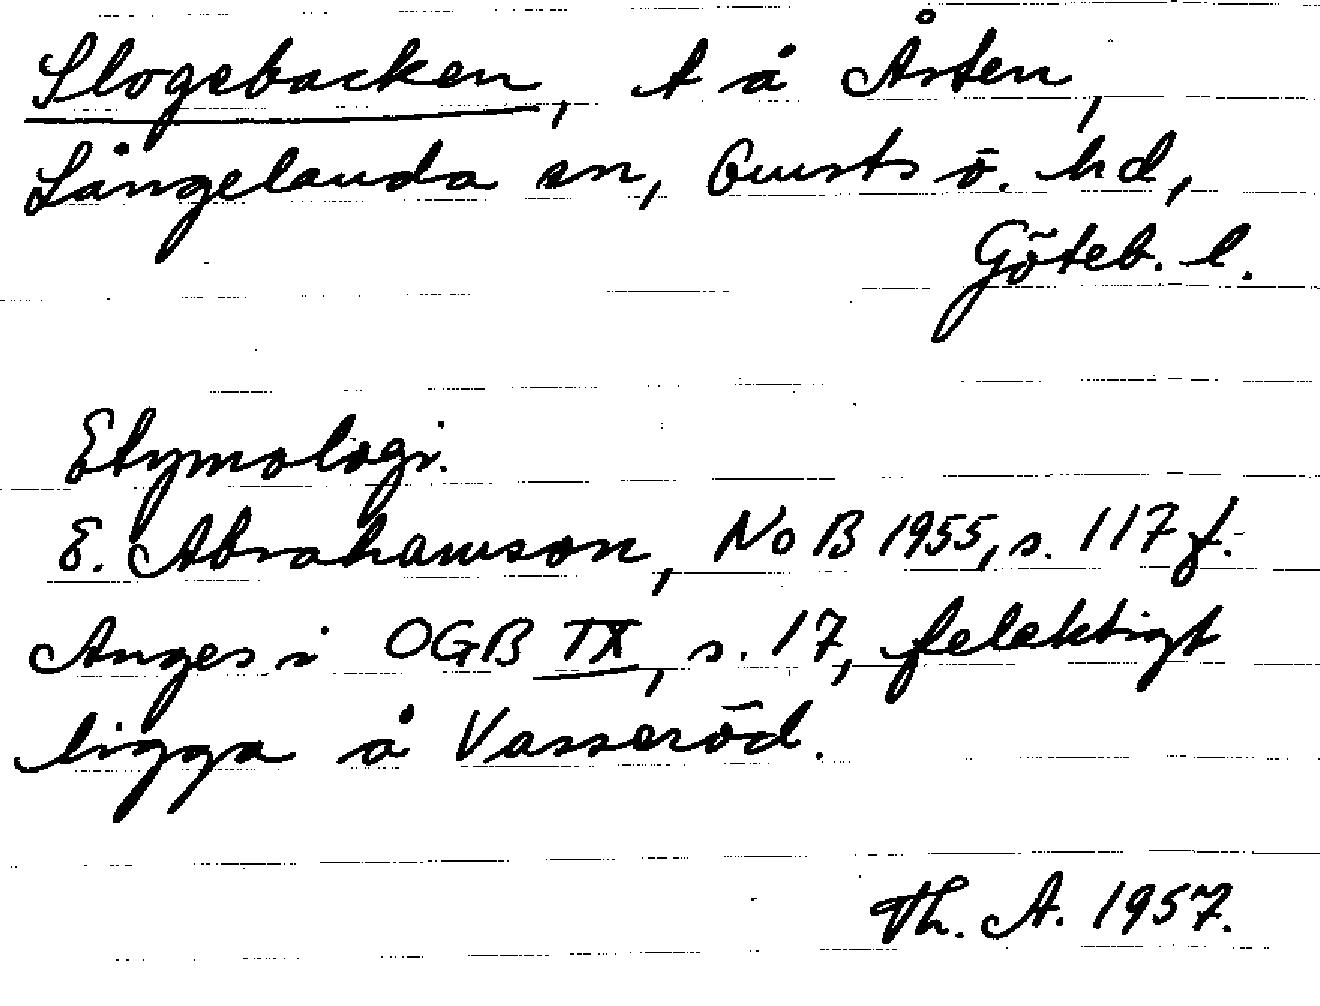 Slogebacken, t å Årten,
Långelanda sn, Orusts ö. hd,
Göteb. l.
Etymologi.
E. Abrahamson, NoB 1955, s. 117 f.
Anges i OGB IX, s. 17, felaktigt
ligga å Vasseröd.
Th. A. 1957.